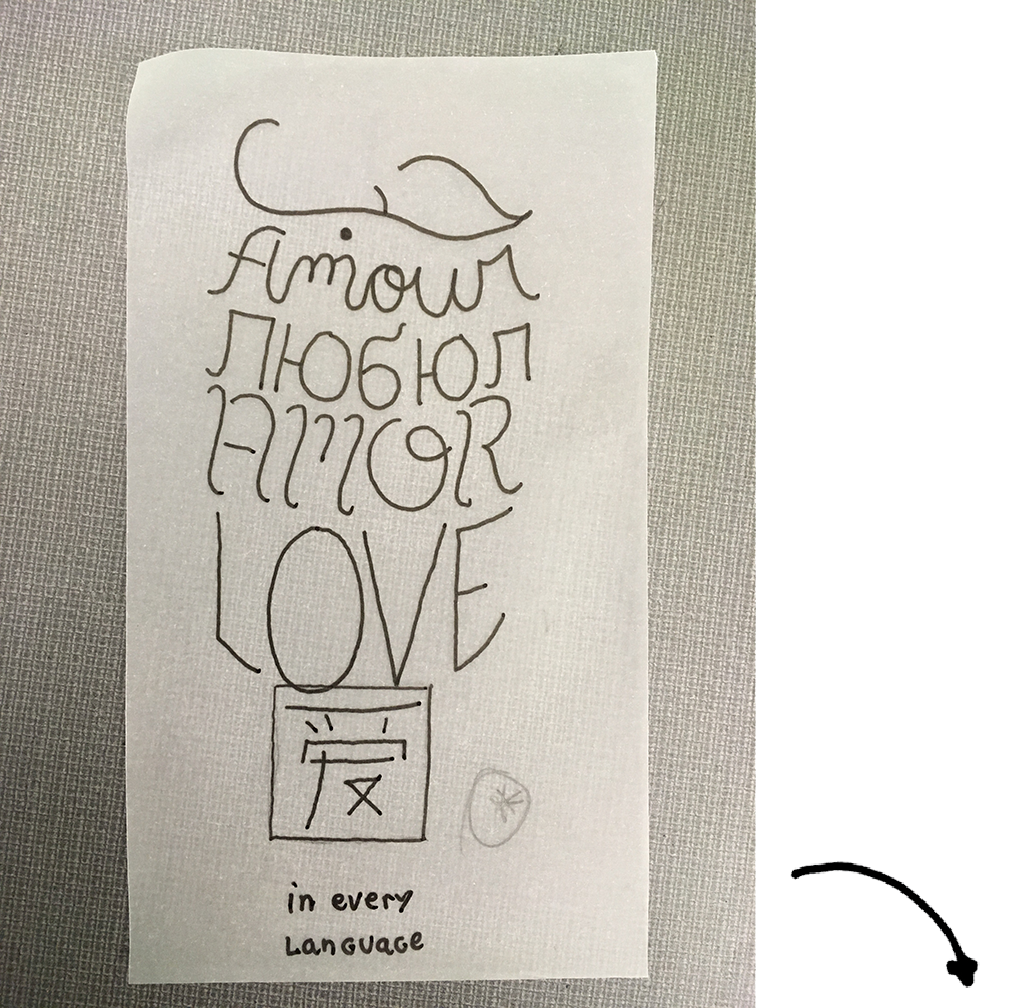 حب
Amour
ЛЮбЮЛ
AMOR
LOVE
爱
in every
LanGUAGe